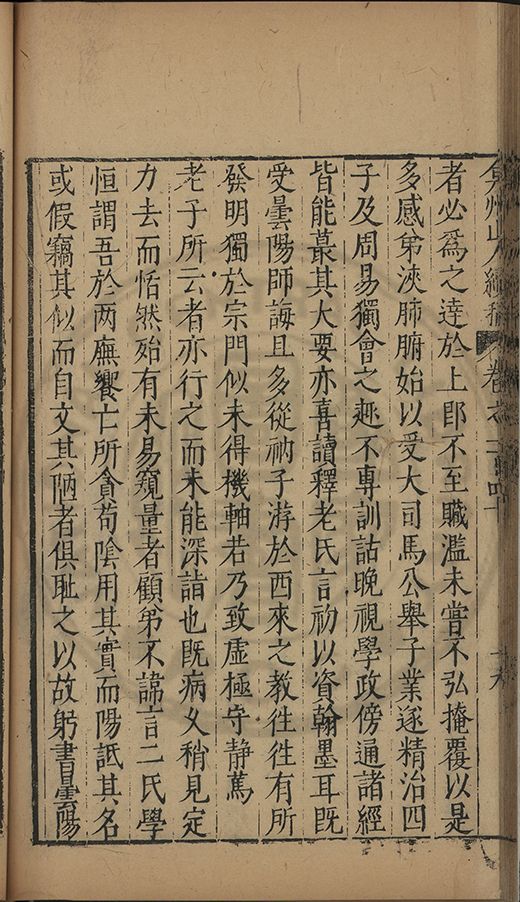 弇州山人續稿 卷之一百四十 十九
者必爲之達於上郎不至贓濫未嘗不弘掩覆以是
多感弟浹肺腑始以受大司馬公舉子業遂精治四
子及周易獨會之趣不專訓詁晚視學政傍通諸經
皆能蕞其大要亦喜讀釋老氏言初以資翰墨耳既
受曇陽師誨且多從衲子游於西來之教徃徃有所
發明獨於宗門似未得機軸若乃致虛極守静篤
老子所云者亦行之而未能深詣也既病乆稍見定
力去而恬然殆有未易窺量者顧弟不諱言二氏學
恒謂吾於两廡饗亡所貪苟陰用其實而陽詆其名
或假竊其似而自文其陋者俱耻之以故躬書曇陽